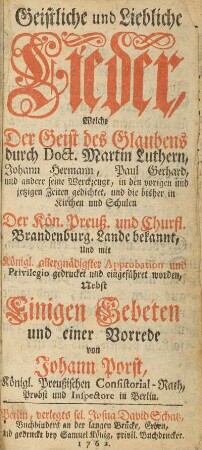 Geistliche und Liebliche
Lieder,
Welche
Der Geist des Glaubens
durch Doct. Martin Luthern,
Johann Hermann, Paul Gerhard,
und andere seine Werckzeuge, in den vorigen und
jetzigen Zeiten gedichtet, und die bisher in
Kirchen und Schulen
Der Kön. Preuß. und Churfl.
Brandenburg. Lande bekannt,
Und mit
Königl. allergnädigster Approbation und
Privilegio gedrucket und eingeführet worden,
Nebst
Einigen Gebeten
und einer Vorrede
von
Johann Porst,
Königl. Preußischen Consistorial-Rath,
Probst und Inspectore in Berlin.
Berlin, verlegts sel. Josua David Schatz,
Buchbinders an der langen Brücke, Erben,
und gedruckt bey Samuel König, privil. Buchdrucker.
1762.